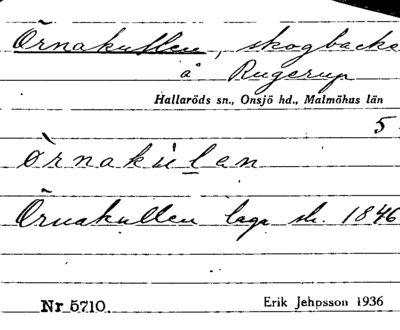 Örnakullen, skogbacke
å Rugerup
Hallaröds sn., Onsjö hd., Malmöhus län
5
òrnakùlen
Örnakullen laga sk. 1846
Nr 5710. Erik Jeppsson 1936